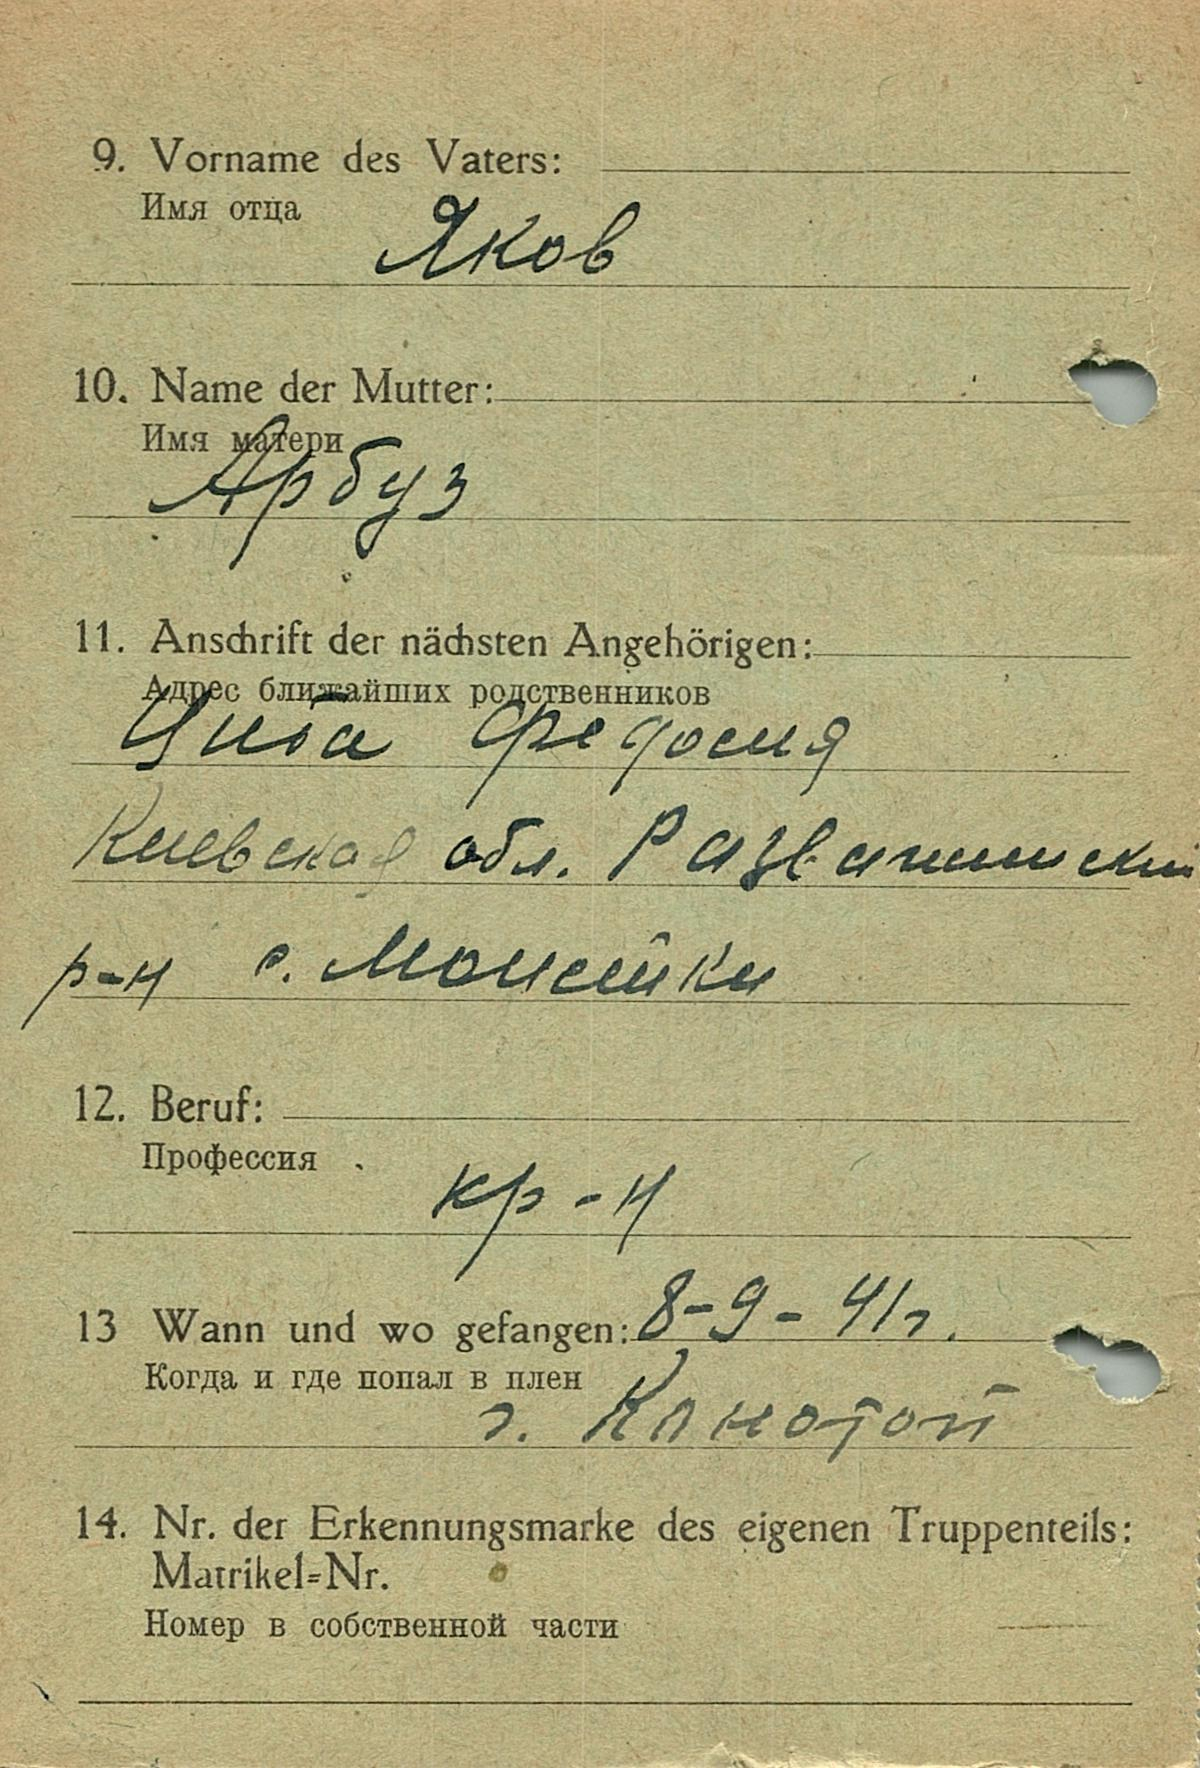 9. Vorname des Vaters:
Имя отца
Яков
10. Name der Mutter:
Имя матери
Арбуз
11. Anschrift der nächsten Angehörigen:
Адрес ближайших родственников
Циба Федосия
Киевская обл. Розважинский
р-н с. Мойсейки
12. Beruf:
Профессия
кр-н
13 Wann und wo gefangen: 8-9-41г.
Когда и где попал в плен
г. Канотоп
14. Nr. der Erkennungsmarke des eigenen Truppenteils:
Matrikel=Nr.
Номер в собственной части